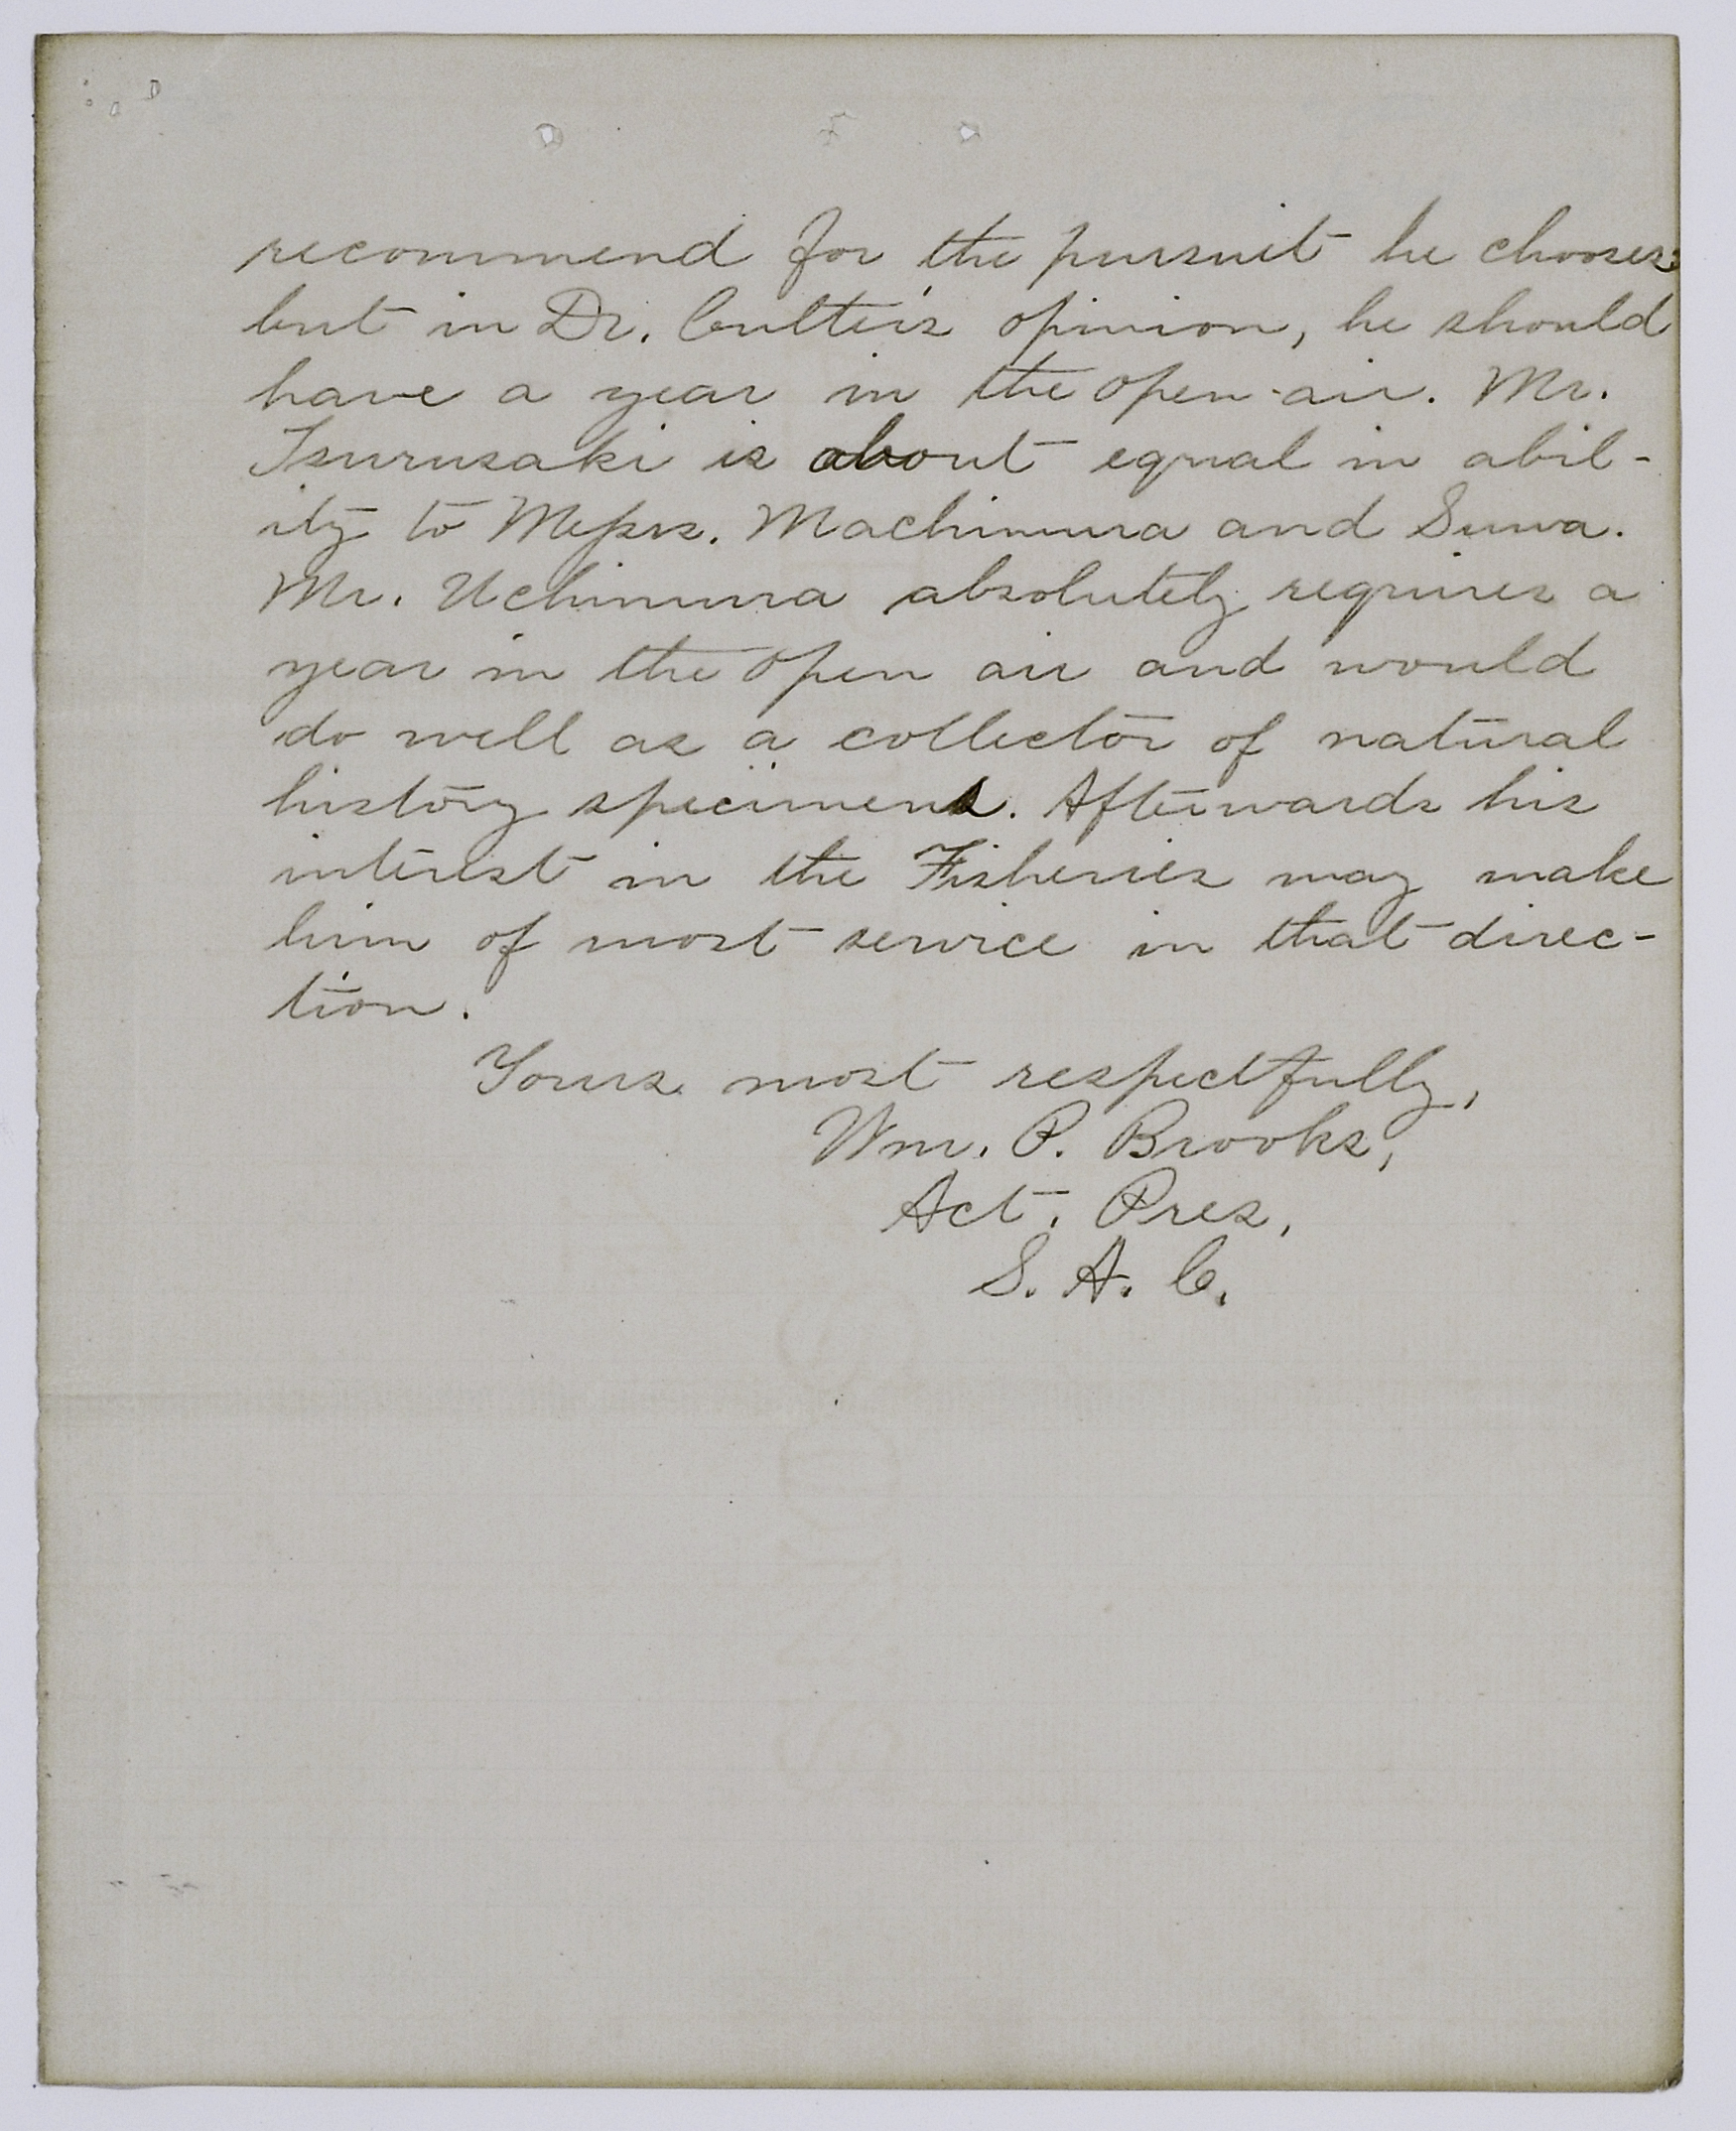 recommend for the pursuit he chooses;
but in Dr. Cutter's opinion, he should
have a year in the open air. Mr.
Tsurusaki is about equal in abil-
ity to Messrs. Machimura and Suwa.
Mr. Uchimura absolutely requires a
year in the open air and would
do well as a collector of natural
history specimens. Afterwards his
interest in the Fisheries may make
him of most service in that direc-
tion.
Yours most respectfully,
Wm. P. Brooks,
Act. Pres,
S. A. C.